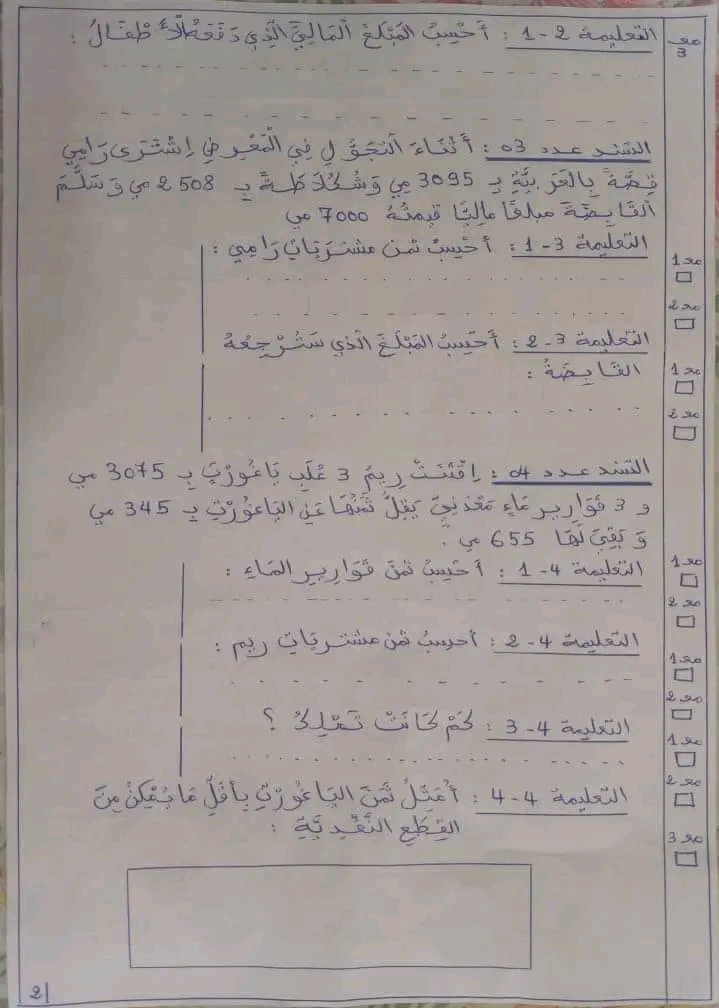 التعليمة 2-1 : أَحْسِبُ المَبْلَغَ المَالِيَّ الَّذِي دَفَعَهُ الأَطْفَالُ :
مع 3
السند عدد 03 : أَثْنَاءَ التَجَوُّلِ فِي المَعْرِضِ اِشْتَرَى رَامِي
قِصَّةً بِالعَرَبِيَّةِ بِـ 3095 مي وَشُكُلاَطَةً بِـ 2508 مي وَسَلَّمَ
القَابِضَةَ مبلغًا مالِيًّا قيمتُهُ 7000 مي
التعليمة 3-1 : أَحْسِبُ ثمن مشترَيَاتِ رَامِي :
مع 1
مع 2
التعليمة 3-2 : أَحْسِبُ المَبْلَغَ الّذي سَتُرْجِعُهُ
القَابِضَةُ :
مع 1
مع 2
السند عدد 04 : اِقْتَنَتْ رِيمُ 3 عُلَبِ يَاغُورْتٍ بِـ 3075 مي
و 3 قَوَارِيرِ مَاءٍ مَعْدَنِيٍّ يَقِلُّ ثَمَنُهَا عَنِ اليَاغُورْتِ بِـ 345 مي
وَ بَقِيَ لَهَا 655 مي .
التعليمة 4-1 : أَحْسِبُ ثمنَ قَوَارِيرِ المَاءِ :
مع 1
مع 2
التعليمة 4-2 : أحسبُ ثمن مشتريات ريم :
مع 1
مع 2
التعليمة 4-3 : كَمْ كَانَتْ تَمْلِكُ ؟
مع 1
مع 2
التعليمة 4-4 : أُمَثِّلُ ثَمَنَ اليَاغُورْتِ بِأَقَلِّ مَا يُمْكِنُ مِنَ
القِطَعِ النَّقْدِيَّةِ :
مع 3
2